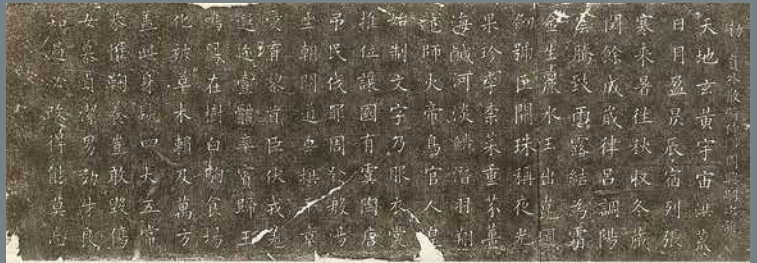 勅員外散騎侍郎周興嗣次韻
天地玄黃宇宙洪荒
日月盈昃辰宿列張
寒来暑往秋收冬藏
閏餘成歲律呂調陽
雲騰致雨露結為霜
金生麗水玉出崑岡
劍號巨闕珠稱夜光
果珍李柰菜重芥薑
海鹹河淡鱗潛羽翔
龍師火帝鳥官人皇
始制文字乃服衣裳
推位讓國有虞陶唐
吊民伐罪周發殷湯
坐朝問道垂拱平章
愛育黎首臣伏戎羌
遐邇壹體率賓歸王
鳴鳳在樹白駒食場
化被草木賴及萬方
蓋此身髮四大五常
恭惟鞠養豈敢毀傷
女慕貞潔男効才良
知過必改得能莫忘